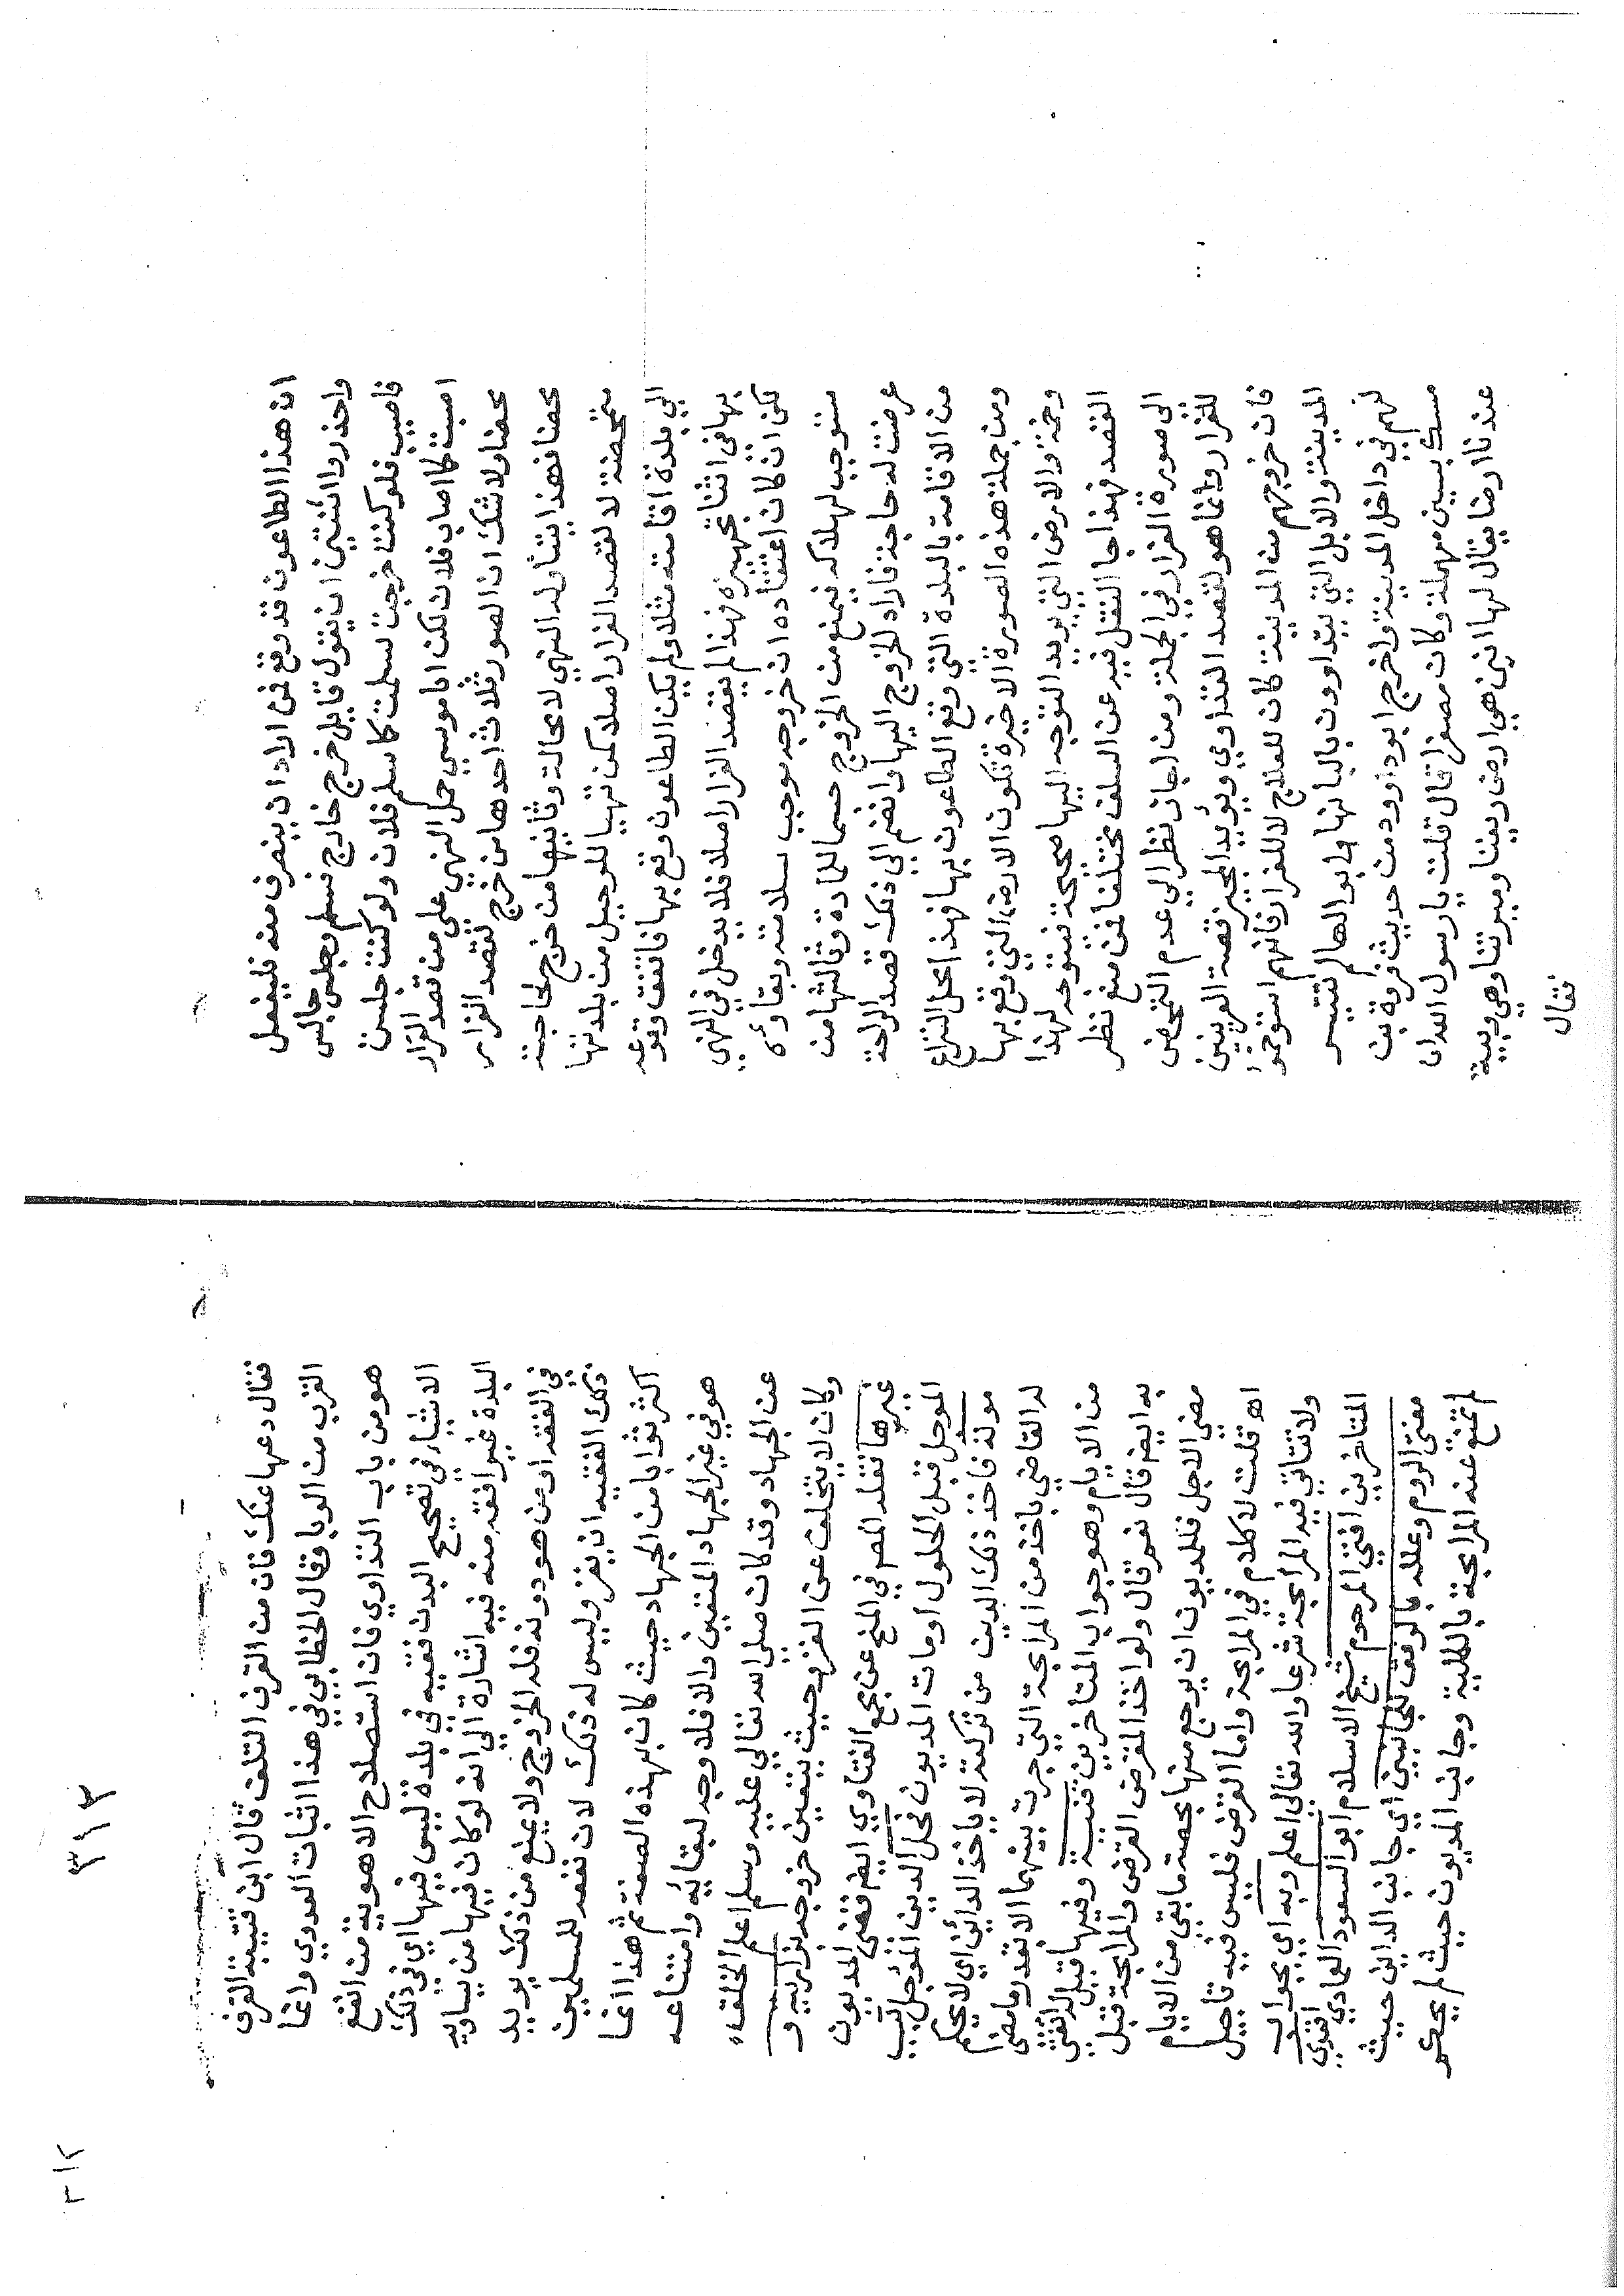 ان هذا الطاعون قد وقع فمن اراد ان يتفرق منه فليفعل
واحذروا اثنتين ان يقول قايل خرج خارج فسلم وجلس جالس
فاصيب فلو كنت خرجت سلمت كما سلم فلان ولو كنت جلست
اصبت كما اصاب فلان لكن ابا موسي حمل النهي علي من قصد الفرار
محضا ولا شك ان الصور ثلاث احدها من خرج لقصد الفرار
محضا فهذا يتناوله النهي لا محالة وثانيها من خرج لحاجة
متمحضة لا لقصد الفرار اصلا كمن تهيا للرحيل من بلدتها
الي بلدة اقامته مثلا ولم يكن الطاعون وقع بها فاتفق وقوعه
بها في اثنا تجهيزه فهذا لم يقصد الفرار اصلا فلا يدخل في النهي
لكن ان كان اعتقاده ان خروجه موجب سلامته وبقاؤه
مستوجب لهلاكه فيمنع من الخروج حسما للمادة وثالثها من
عرضت له حاجة فاراد الخروج اليها وانضم الي ذلك قصد الراحة
من الاقامة بالبلدة التي وقع الطاعون بها فهذا محل النزاع
ومن جملة هذه الصورة الاخيرة تكون الارض التي وقع بها
وخمة والارض التي يريد التوجه اليها صحيحة فيتوجه لهذا
القصد فهذا جا النقل فيه عن السلف مختلفا فمن منع نظر
الى صورة الفرار في الجملة ومن اجاز نظر الي عدم التمحض
للفرار وانما هو لقصد التداوي ويؤيد المجيز قصة العرنيين
فان خروجهم من المدينة كان للعلاج لا للفرار فانهم استوخموا
المدينة والابل التي يتداوون بالبانها وابوالها لم تتيسر
لهم في داخل المدينة واخرج ابو داوود من حديث فروة بن
مسيك بسين مهملة وكان مصغرا قال قلت يا رسول الله ان
عندنا ارضا يقال لها ابين هي ارض ريفنا وميرتنا وهي وبية
فقال
٣١٢
٢١٢
فقال دعها عنك فان من القرف التلف قال ابن قتيبة القرف
القرب من الوبا وقال الخطابي في هذا اثبات العدوي وانما
هو من باب التداوي فان استصلاح الاهوية من انفع
الاشياء في تصحيح البدن فقيه في بلدة ليس فيها اي في تلك
البلدة غيره افقه منه فيه اشارة الي انه لو كان فيها من يساويه
في الفقه او من هو دونه فله الخروج ولا يمنع من ذلك يريد
ذلك الفقيه ان يغزو ليس له ذلك لان نفعه للمسلمين
اكثر ثوابا من الجهاد حيث كان بهذه الصفة ثم هذا انما
هو في غير الجهاد المتعين والا فلا وجه لبقائه وامتناعه
عن الجهاد وقد كان صلي الله تعالي عليه وسلم اعلم الخلق
وكان لا يتخلف عن الغزو حيث يتعين خروجه بزازيه و
غيرها نقله المص في المنح عن مجمع الفتاوي ايضم قضى المديون
الموجل قبل الحلول او مات المديون فحل الدين المؤجل
موته فاخذ ذلك الدين من تركته لا ياخذ الداين اي لا يحكم
له القاضي باخذ من المرابحة التي جرت بينهما الا بقدر ما مضى
من الايام وهو جواب المتاخرين قنية وفيها قيل له افتي
به ايضم قال نعم قال ولو اخذ المقرض القرض والمرابحة قبل
مضي الاجل فللمديون ان يرجع منها بحصة ما بقي من الايام
اهـ قلت لا كلام في المرابحة واما القرض فليس فيه تاجيل
ولا تتاتي فيه المرابحة شرعا والله تعالى اعلم وبه اي بجواب
المتاخرين افتى المرحوم شيخ الاسلام ابو السعود العمادي افندي
مفتى الروم وعلله بالرفق للجانبين اي جانب الداين حيث
لم تمنع عنه المرابحة بالكلية وجانب المديون حيث لم يحكم